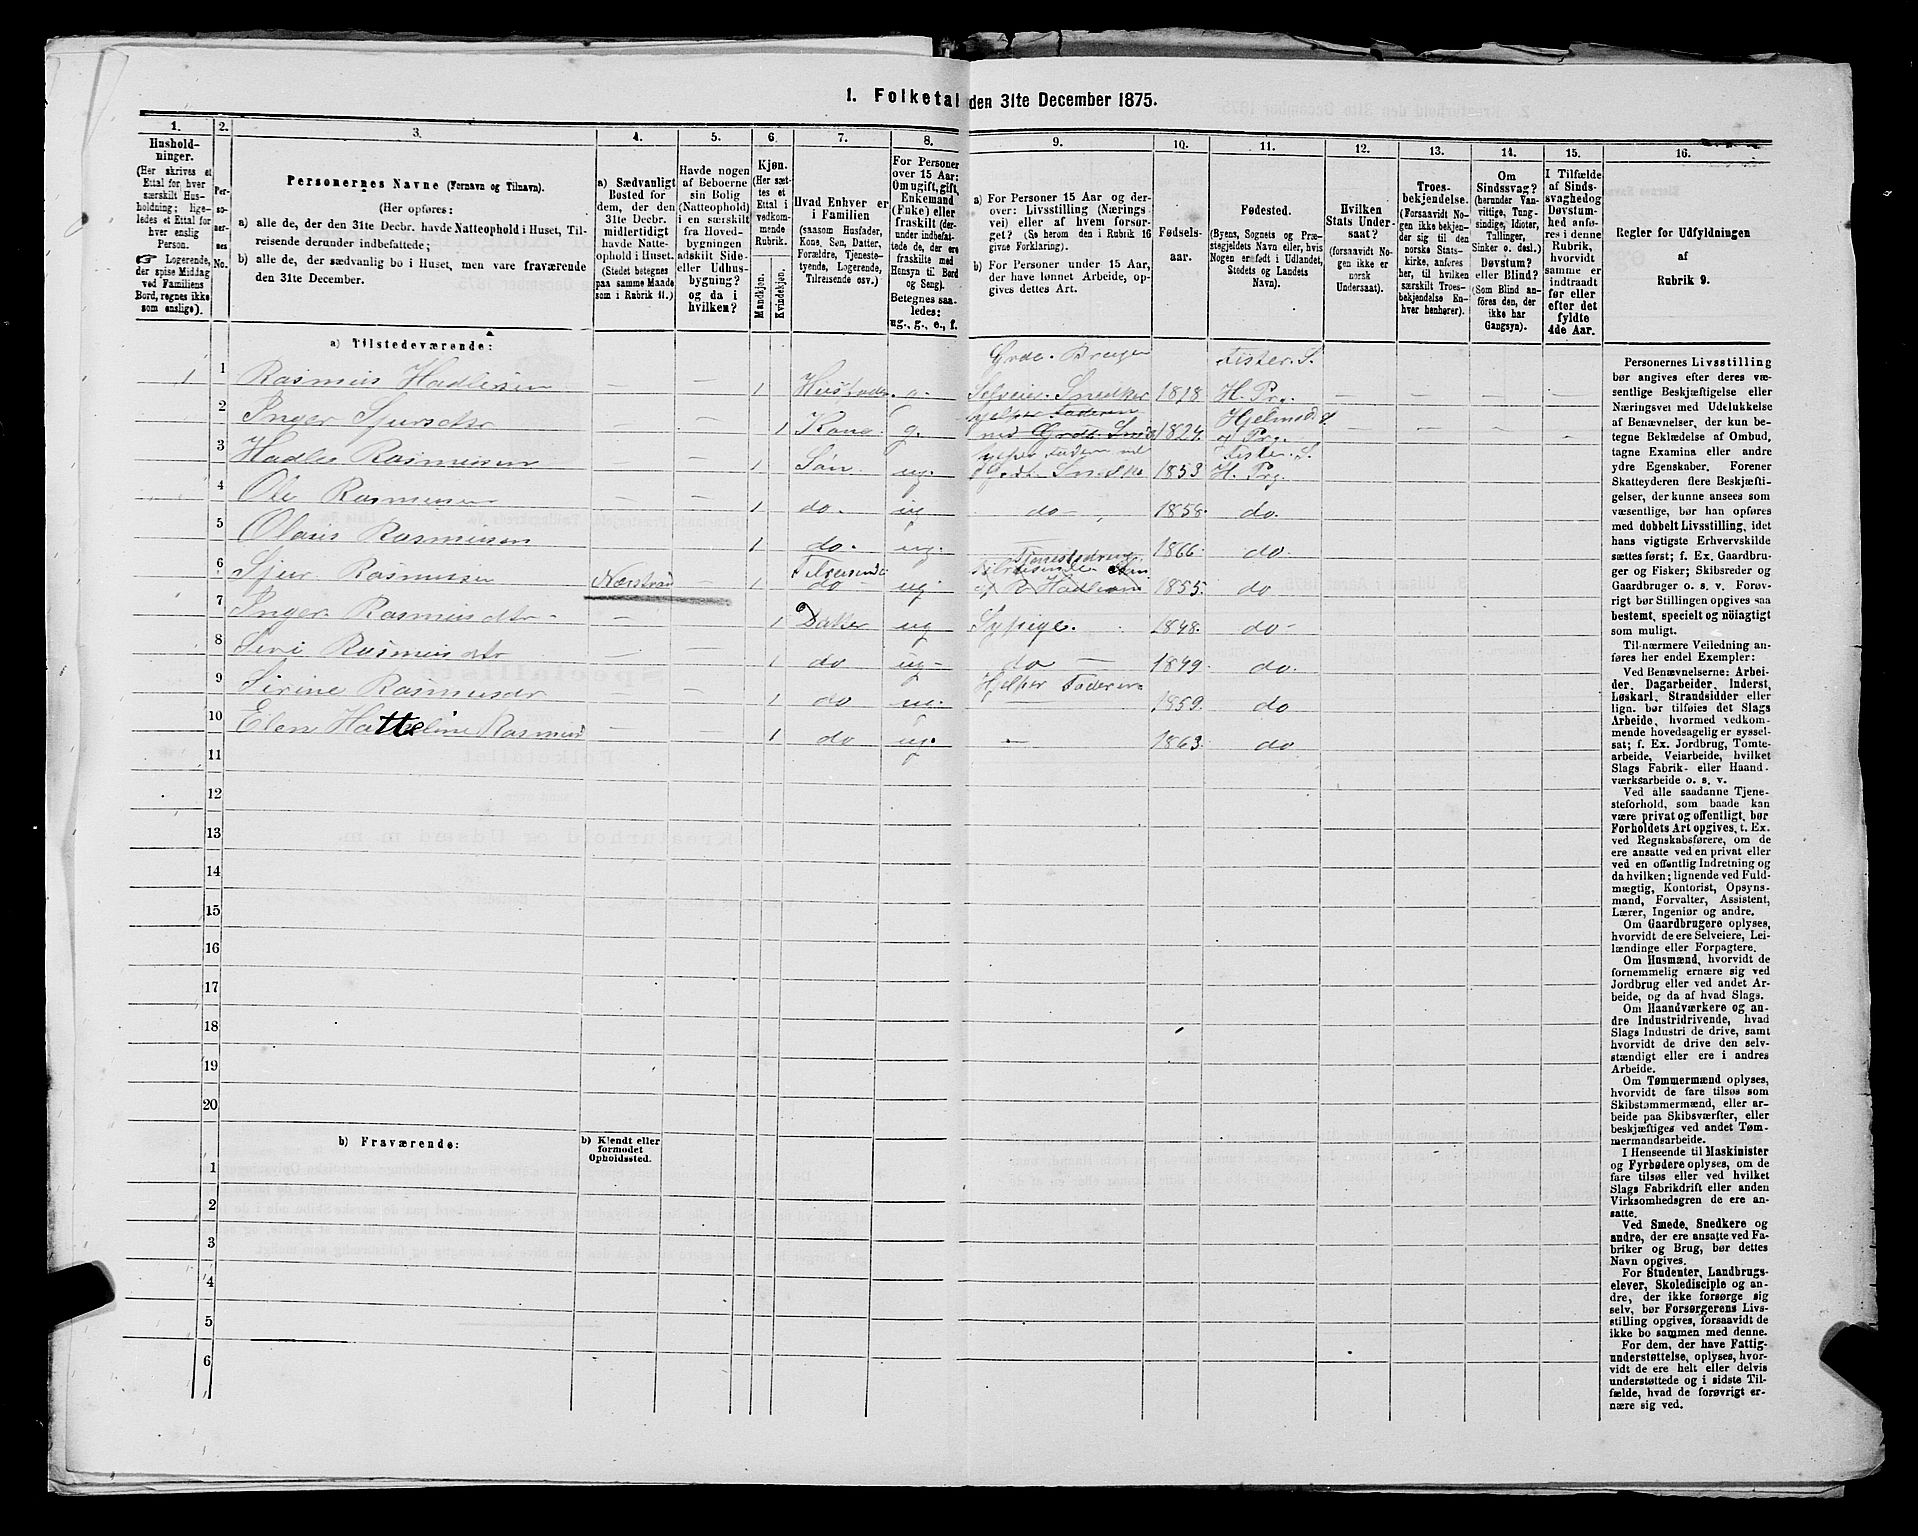 1. Folketal den 31te December 1875.
1.
Hushold-
ninger.
(Her skrives et
Ettal for hver
særskilt Hus-
holdning; lige-
ledes et Ettal for
hver enslig
Person.
☞ Logerende,
der spise Middag
ved Familiens
Bord, regnes ikke
som enslige).
2.
Per-
so-
ner-
nes
No.
3.
Personernes Navne (Fornavn og Tilnavn).
(Her opføres:
a) alle de, der den 31te Decbr. havde Natteophold i Huset, Til-
reisende derunder indbefattede;
b) alle de, der sædvanlig bo i Huset, men vare fraværende
den 31te December.
4.
a) Sædvanligt
Bosted for
dem, der den
31te Decbr.
midlertidigt
havde Natte-
ophold i Huset.
(Stedet betegnes
paa samme Maade
som i Rubrik 11.)
5.
Havde nogen
af Beboerne
sin Bolig
(Natteophold)
i en særskilt
fra Hoved-
bygningen
adskilt Side-
eller Udhus-
bygning?
og da i
hvilken?
6.
Kjøn.
(Her sæt-
tes et
Ettal i
vedkom-
mende
Rubrik.
Mandkjøn.
Kvindekjøn.
7.
Hvad Enhver er
i Familien
(saasom Husfader,
Kone, Søn, Datter,
Forældre, Tjeneste-
tyende, Logerende,
Tilreisende osv.)
8.
For Personer
over 15 Aar:
Om ugift, gift,
Enkemand
(Enke) eller
fraskilt (der-
under indbefat-
tede de, der ere
fraskilte med
Hensyn til Bord
og Seng).
Betegnes saa-
ledes:
ug., g., e., f.
9.
a) For Personer 15 Aar og der-
over: Livsstilling (Nærings-
vei) eller af hvem forsør-
get? (Se herom den i Rubrik 16
givne Forklaring).
b) For Personer under 15 Aar,
der have lønnet Arbeide, op-
gives dettes Art.
10.
Fødsels-
aar.
11.
Fødested.
(Byens, Sognets og Præ-
stegjeldets Navn eller, hvis
Nogen er født i Udlandet,
Stedets og Landets
Navn).
12.
Hvilken
Stats Under-
saat?
(forsaavidt No-
gen ikke er
norsk
Undersaat).
13.
Troes-
bekjendelse.
(Forsaavidt No-
gen ikke bekjen-
der sig til den
norske Stats-
kirke, anføres
her, til hvilken
særskilt Troes-
bekjendelse En-
hver henhører).
14.
Om
Sindssvag?
(herunder Van-
vittige, Tung-
sindige, Idioter,
Tullinger,
Sinker o. desl.)
Døvstum?
eller Blind?
(Som Blind an-
føres den, der
ikke har
Gangsyn).
15.
I Tilfælde
af Sinds-
svaghed og
Døvstum-
hed anfø-
res i denne
Rubrik,
hvorvidt
samme er
indtraadt
før eller
efter det
fyldte
4de Aar.
16.
Regler for Udfyldningen
af
Rubrik 9.
a) Tilstedeværende:
1 1 Rasmus Hadlesen — — 1 Husfader g. Grdb. Bruger Selveier Snedker 1818 Fister S. H. Prg. — — — —
2 Inger Sjursdtr — 1 Kone g. 1824. Hjelmel. S. og Prg. — — — —
3 Hadle Rasmussen — — 1 Søn ug. hjelper Faderen ved Grdb. Snedke 1853 Fister S. H. Prg.
4 Ole Rasmussen — — 1 do. ug do 1858. do.
5 Olaus Rasmussen — — 1 do. ug. — 1866. do.
6 Sjur Rasmussen Nærstrand — 1 Tilreisende do ug 1855. do
7 Inger Rasmusdtr — — 1 Datter ug Sypige. 1848. do
8 Siri Rasmusdtr — — 1 do ug do — 1849. do.
9 Sirine Rasmusdtr — — 1 do ug. Hjelper Faderen 1859. do
10 Elen Hatteline Rasmusd — — 1 do ug. — 1863. do
11
12
13
14
15
16
17
18
19
20
b) Fraværende:
b) Kjendt eller
formodet
Opholdssted.
1
2
3
4
5
6
Personernes Livsstilling
bør angives efter deres væ-
sentlige Beskjæftigelse eller
Næringsvei med Udelukkelse
af Benævnelser, der kun be-
tegne Beklædelse af Ombud,
tagne Examina eller andre
ydre Egenskaber. Forener
Skatteyderen flere Beskjæfti-
gelser, der kunne ansees som
væsentlige, bør han opføres
med dobbelt Livsstilling, idet
hans vigtigste Erhvervskilde
sættes først; f. Ex. Gaardbru-
ger og Fisker; Skibsreder og
Gaardbruger o. s. v. Forøv-
rigt bør Stillingen opgives saa
bestemt, specielt og nöiagtigt
som muligt.
Til nærmere Veiledning an-
føres her endel Exempler:
Ved Benævnelserne: Arbei-
der, Dagarbeider, Inderst,
Løskarl, Strandsidder eller
lign. bør tilføies det Slags
Arbeide, hvormed vedkom-
mende hovedsagelig er syssel-
sat; f. Ex. Jordbrug, Tomte-
arbeide, Veiarbeide, hvilket
Slags Fabrik- eller Haand-
værksarbeide o. s. v.
Ved alle saadanne Tjene-
steforhold, som baade kan
være privat og offentligt, bør
Forholdets Art opgives, t. Ex.
ved Regnskabsførere, om de
ere ansatte ved en privat eller
ved en offentlig Indretning og
da hvilken; lignende ved Fuld-
mægtig, Kontorist, Opsyns-
mand, Forvalter, Assistent,
Lærer, Ingeniør og andre.
Om Gaardbrugere oplyses,
hvorvidt de ere Selveiere, Lei-
lændinge eller Forpagtere.
Om Husmænd, hvorvidt de
fornemmelig ernære sig ved
Jordbrug eller ved andet Ar-
beide, og da af hvad Slags.
Om Haandværkere og an-
dre Industridrivende, hvad
Slags Industri de drive, samt
hvorvidt de drive den selv-
stændigt eller ere i andres
Arbeide.
Om Tømmermænd oplyses,
hvorvidt de fare tilsøs som
Skibstømmermænd, eller ar-
beide paa Skibsværfter, eller
beskjæftiges ved andet Tøm-
mermandsarbeide.
I Henseende til Maskinister
og Fyrbødere oplyses, om de
fare tilsøs eller ved hvilket
Slags Fabrikdrift eller anden
Virksomhedsgren de ere an-
satte.
Ved Smede, Snedkere og
andre, der ere ansatte ved Fa-
briker og Brug, bør dettes
Navn opgives.
For Studenter, Landbrugs-
elever, Skoledisciple og an-
dre, der ikke forsørge sig
selv, bør Forsørgerens Livs-
stilling opgives, forsaavidt de
ikke bo sammen med denne.
For dem, der have Fattig-
understøttelse, oplyses, hvor-
vidt de ere helt eller delvis
understøttede og i sidste Til-
fælde, hvad de forøvrigt er-
nære sig ved.